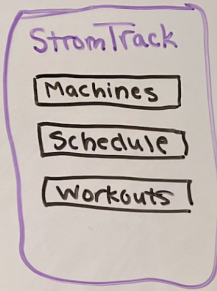 StromTrack
Machines
Schedule
Workouts